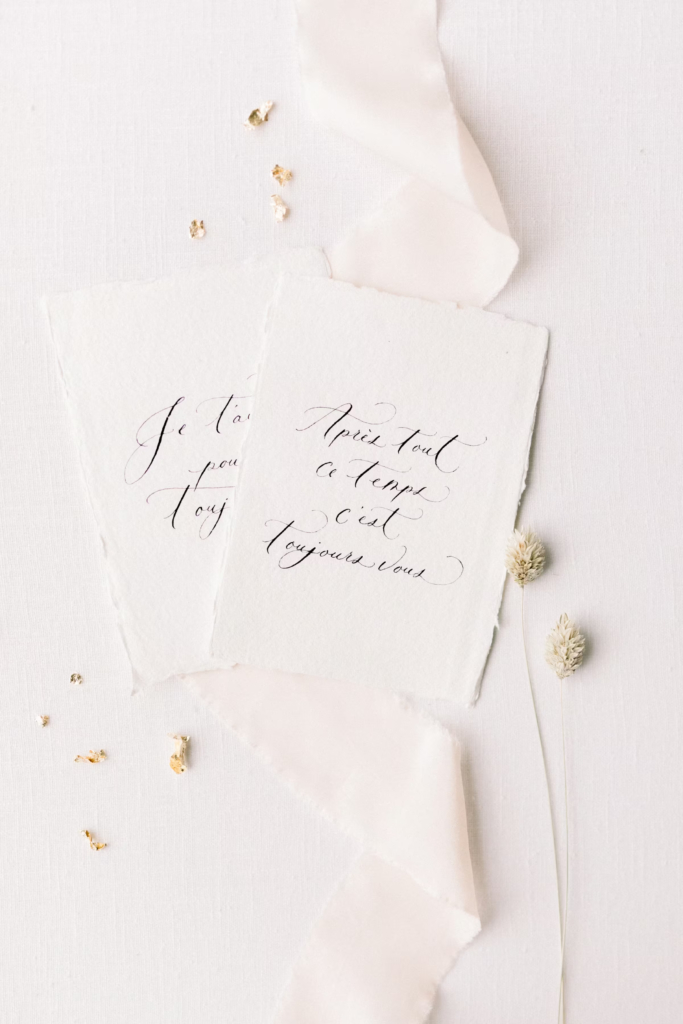 Je t'ai
pou
touj
Après tout
ce temps
c'est
toujours vous